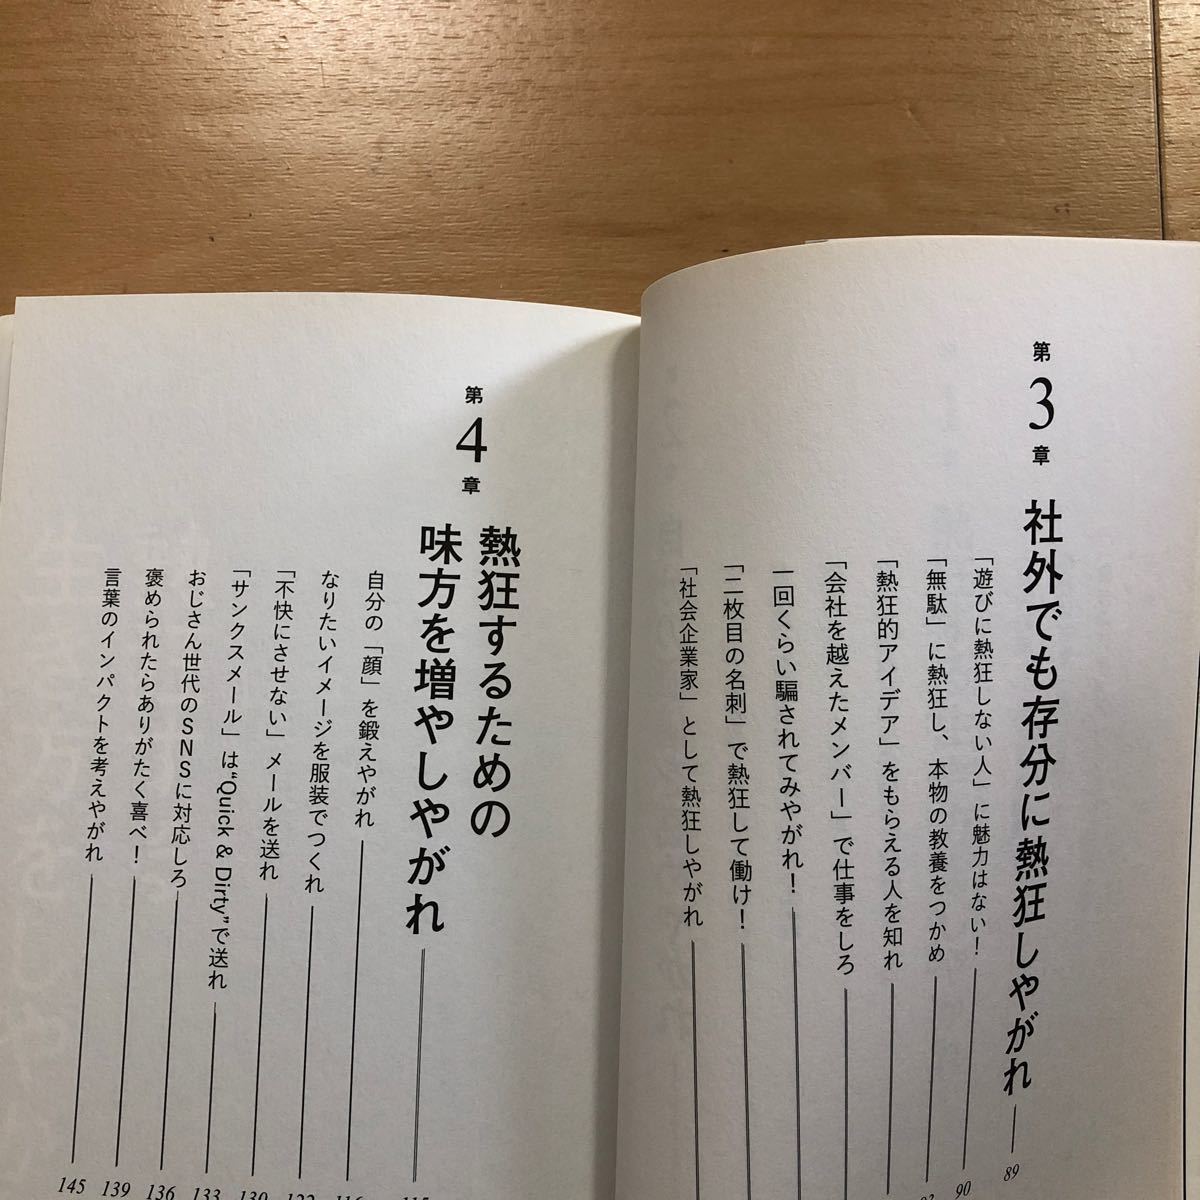 第3章 社外でも存分に熱狂しやがれ 89
「遊びに熱狂しない人」に魅力はない! 90
「無駄」に熱狂し、本物の教養をつかめ
「熱狂的アイデア」をもらえる人を知れ
「会社を越えたメンバー」で仕事をしろ
一回くらい騙されてみやがれ!
「二枚目の名刺」で熱狂して働け!
「社会企業家」として熱狂しやがれ
第4章 熱狂するための
味方を増やしやがれ 115
自分の「顔」を鍛えやがれ 116
なりたいイメージを服装でつくれ 122
「不快にさせない」メールを送れ 130
「サンクスメール」は“Quick & Dirty”で送れ 133
おじさん世代のSNSに対応しろ 136
褒められたらありがたく喜べ! 139
言葉のインパクトを考えやがれ 145